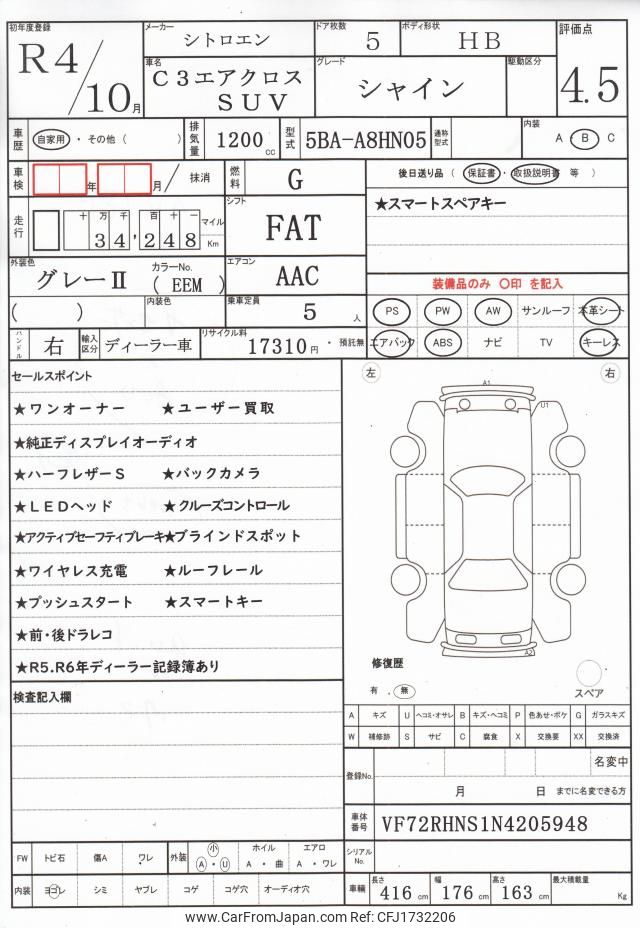 初年度登録
R4/10月
メーカー
シトロエン
ドア枚数
5
ボディ形状
HB
評価点
4.5
車名
C3エアクロス
SUV
グレード
シャイン
駆動区分
車歴
自家用 ・ その他 ( )
排気量
1200 cc
型式
5BA-A8HN05
通称型式
内装
A B C
車検
年 月 / 抹消
燃料
G
後日送り品 ( 保証書 ・ 取扱説明書 等 )
★スマートスペアキー
走行
十 万 千 百 十 一
34,248
マイル
Km
シフト
FAT
外装色
グレーⅡ
カラーNo.
( EEM )
エアコン
AAC
装備品のみ 〇印 を記入
( )
内装色
乗車定員
5 人
PS PW AW サンルーフ 本革シート
ハンドル
右
輸入区分
ディーラー車
リサイクル料
17310円 ・ 預託無
エアバック ABS ナビ TV キーレス
セールスポイント
★ワンオーナー ★ユーザー買取
★純正ディスプレイオーディオ
★ハーフレザーS ★バックカメラ
★LEDヘッド ★クルーズコントロール
★アクティブセーフティブレーキ★ブラインドスポット
★ワイヤレス充電 ★ルーフレール
★プッシュスタート ★スマートキー
★前・後ドラレコ
★R5.R6年ディーラー記録簿あり
左 右
A1
U1
A2
修復歴
有 . 無
スペア
検査記入欄
A キズ U ヘコミ・オサレ B キズ・ヘコミ P 色あせ・ボケ G ガラスキズ
W 補修跡 S サビ C 腐食 X 交換要 XX 交換済
登録No.
名変中
月 日 までに名変できる方
車体番号
VF72RHNS1N4205948
シリアルNo.
FW トビ石 傷A ワレ 外装 小 A ・ U ホイル A ・ 曲 エアロ A ・ ワレ
内装 ヨゴレ シミ ヤブレ コゲ コゲ穴 オーディオ穴
車輌 長さ 416 cm 幅 176 cm 高さ 163 cm 最大積載量 Kg
www.CarFromJapan.com Ref:CFJ1732206